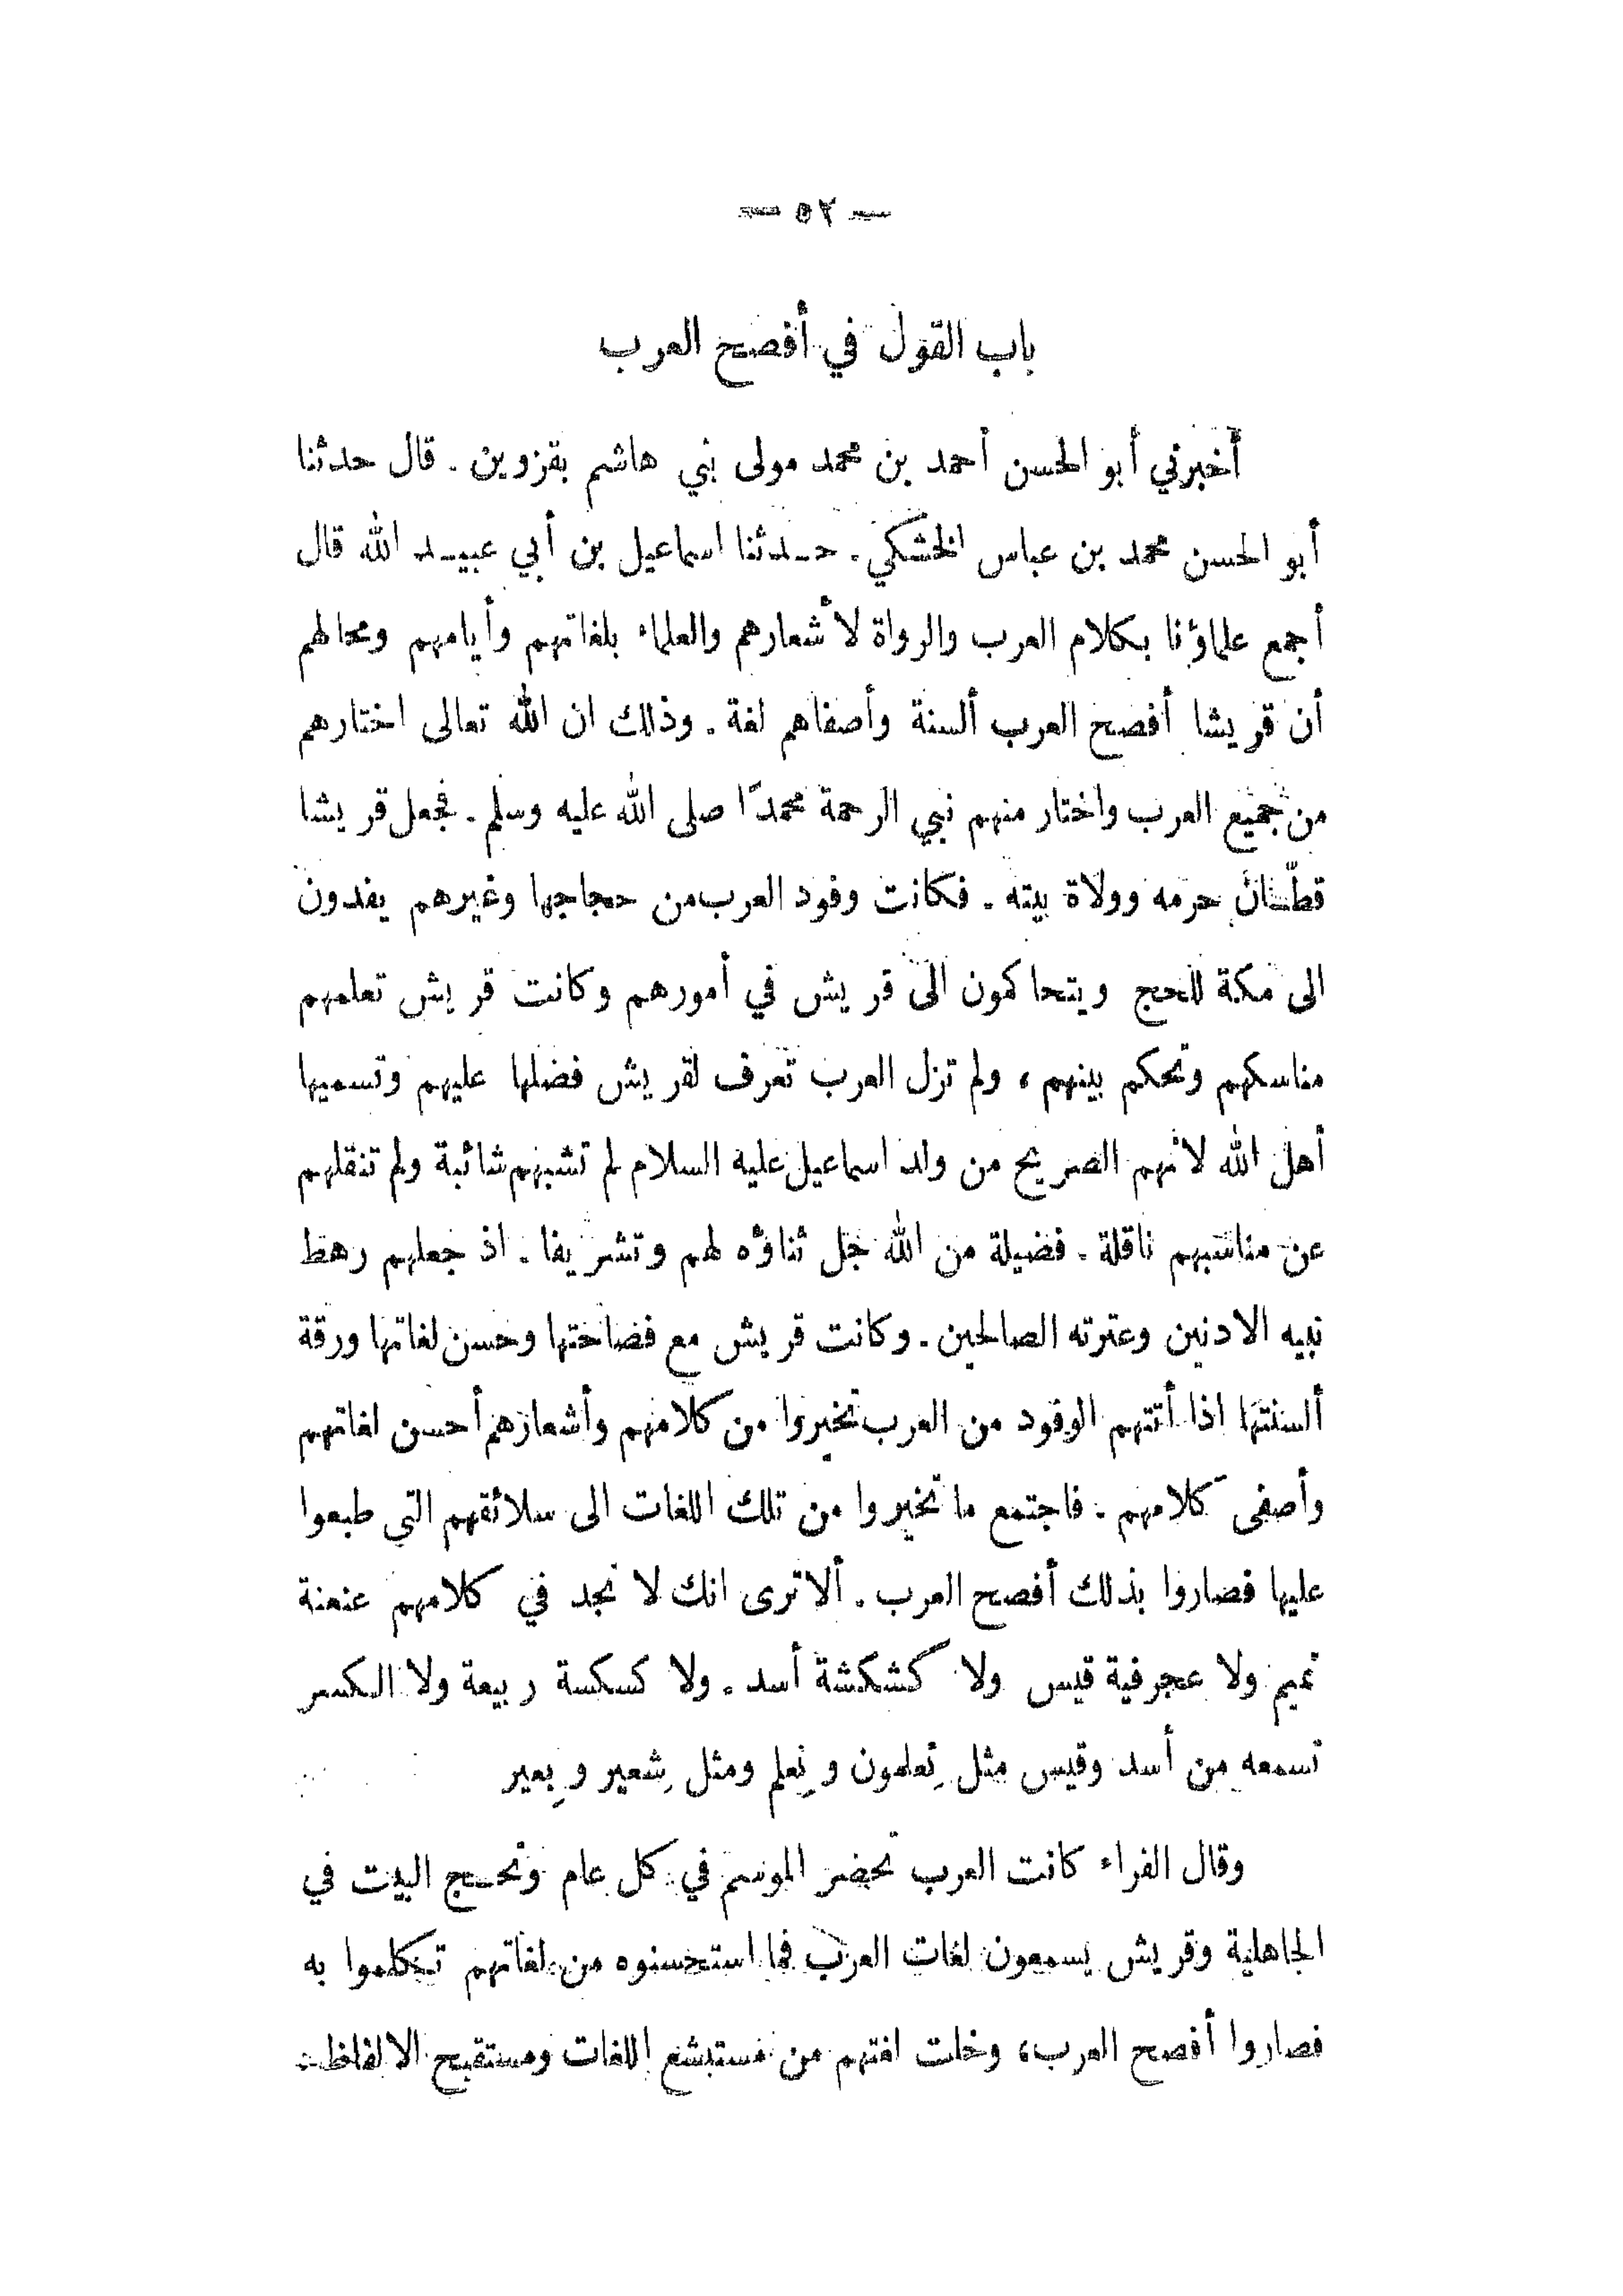 — ٥٢ —
باب القول في أفصح العرب
أخبرني أبو الحسن أحمد بن محمد مولى بني هاشم بقزوين . قال حدثنا
أبو الحسن محمد بن عباس الخشكي . حدثنا اسماعيل بن أبي عبيد الله قال
أجمع علماؤنا بكلام العرب والرواة لأشعارهم والعلماء بلغاتهم وأيامهم ومحالهم
أن قريشا أفصح العرب ألسنة وأصفاهم لغة . وذلك ان الله تعالى اختارهم
من جميع العرب واختار منهم نبي الرحمة محمدًا صلى الله عليه وسلم . فجعل قريشا
قطّان حرمه وولاة بيته . فكانت وفود العرب من حجاجها وغيرهم يفدون
الى مكة للحج ويتحاكمون الى قريش في أمورهم وكانت قريش تعلمهم
مناسكهم وتحكم بينهم ، ولم تزل العرب تعرف لقريش فضلها عليهم وتسميها
أهل الله لأنهم الصريح من ولد اسماعيل عليه السلام لم تشبهم شائبة ولم تنقلهم
عن مناسبهم ناقلة . فضيلة من الله جل ثناؤه لهم وتشريفا . اذ جعلهم رهط
نبيه الادنين وعترته الصالحين . وكانت قريش مع فصاحتها وحسن لغاتها ورقة
ألسنتها اذا أتتهم الوفود من العرب تخيروا من كلامهم وأشعارهم أحسن لغاتهم
وأصفى كلامهم . فاجتمع ما تخيروا من تلك اللغات الى سلائقهم التي طبعوا
عليها فصاروا بذلك أفصح العرب . ألا ترى انك لا تجد في كلامهم عنعنة
تميم ولا عجرفية قيس ولا كشكشة أسد . ولا كسكسة ربيعة ولا الكسر
تسمعه من أسد وقيس مثل تِعلمون و نِعلم ومثل شِعير و بِعير
وقال الفراء كانت العرب تحضر الموسم في كل عام وتحج البيت في
الجاهلية وقريش يسمعون لغات العرب فما استحسنوه من لغاتهم تكلموا به
فصاروا أفصح العرب، وخلت لغتهم من مستبشع اللغات ومستقبح الالفاظ .